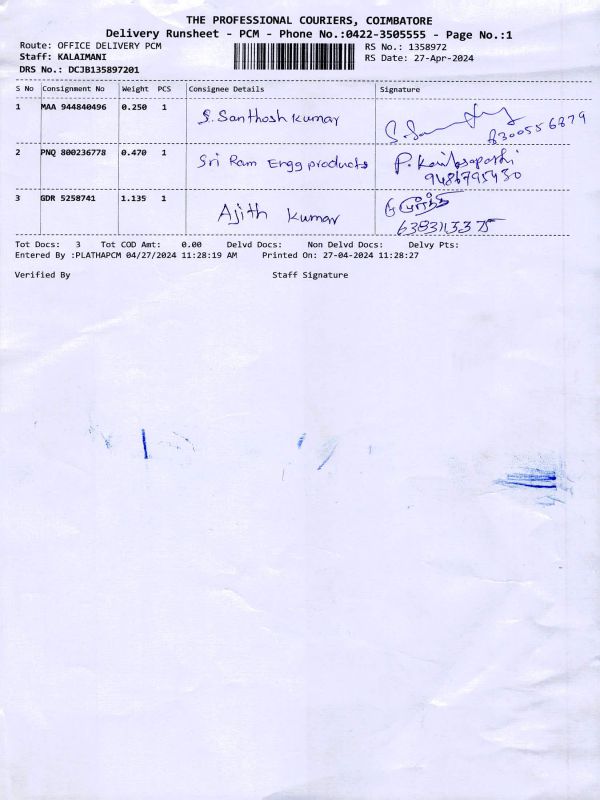 THE PROFESSIONAL COURIERS, COIMBATORE
Delivery Runsheet - PCM - Phone No.:0422-3505555 - Page No.:1
Route: OFFICE DELIVERY PCM RS No.: 1358972
Staff: KALAIMANI RS Date: 27-Apr-2024
DRS No.: DCJB135897201
S No Consignment No Weight PCS Consignee Details Signature
1 MAA 944840496 0.250 1 S. Santhosh Kumar
8300556879
2 PNQ 800236778 0.470 1 Sri Ram Engg products
3 GDR 5258741 1.135 1 Ajith Kumar
Tot Docs: 3 Tot COD Amt: 0.00 Delvd Docs: Non Delvd Docs: Delvy Pts:
Entered By :PLATHAPCM 04/27/2024 11:28:19 AM Printed On: 27-04-2024 11:28:27
Verified By Staff Signature